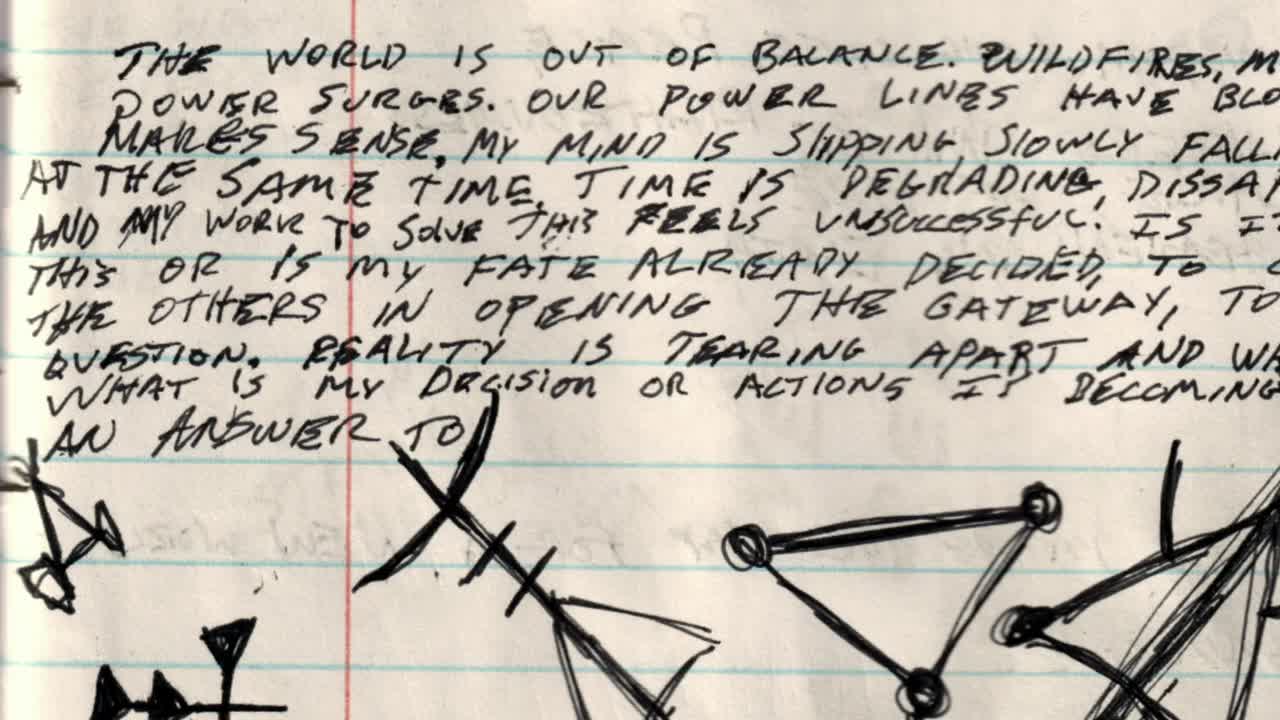 THE WORLD IS OUT OF BALANCE. WILDFIRES, M
POWER SURGES. OUR POWER LINES HAVE BLO
MAKES SENSE, MY MIND IS SlIPPING, SLOWLY FALL
AT THE SAME TIME, TIME IS DEGRADING, DISSAP
AND MY WORK TO SOLVE THIS FEELS UNSUCCESSFUL. IS I
THIS OR IS MY FATE ALREADY DECIDED, TO
THE OTHERS IN OPENING THE GATEWAY, TO
QUESTION. REALITY IS TEARING APART AND WA
WHAT IS MY DECISION OR ACTIONS IS BECOMING
AN ANSWER TO